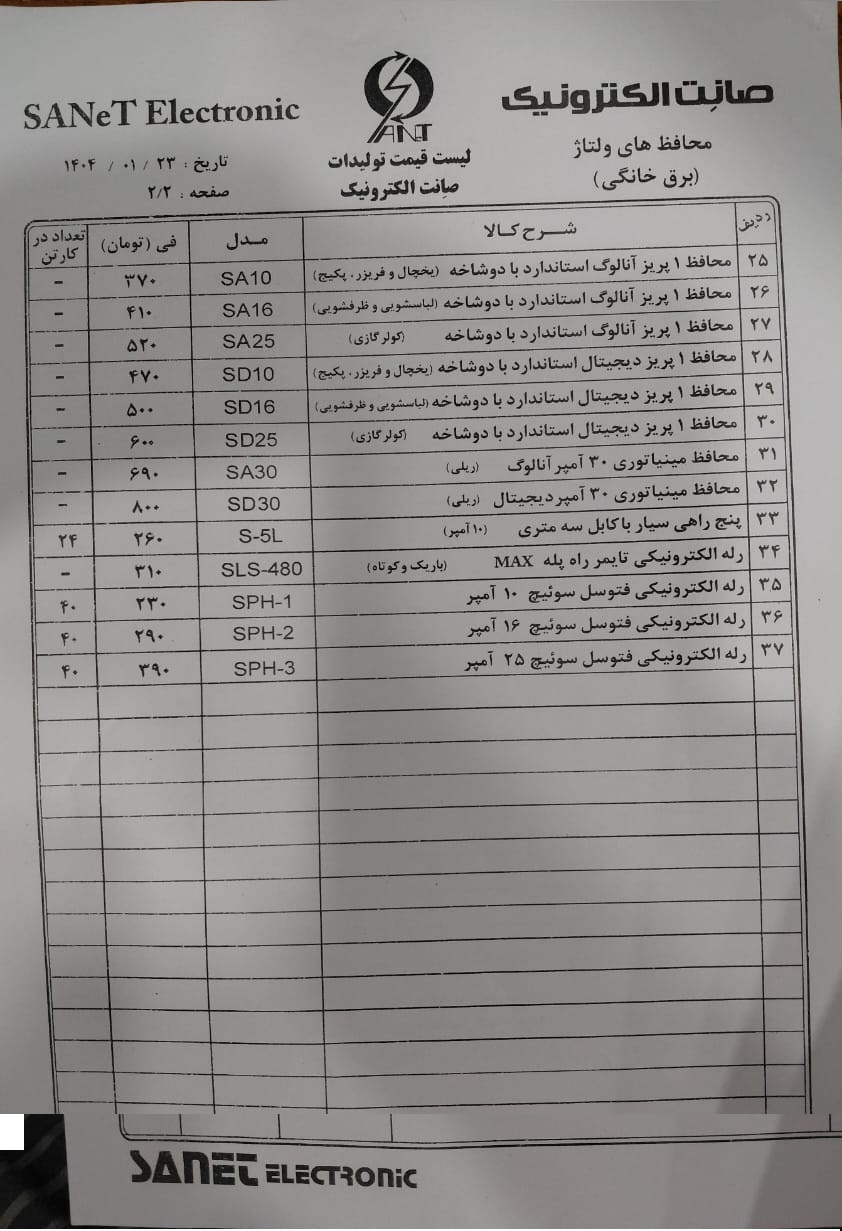 صانِت الکترونیک
SANeT Electronic
SANT
محافظ های ولتاژ
(برق خانگی)
لیست قیمت تولیدات
صانِت الکترونیک
تاریخ : ۲۳ / ۰۱ / ۱۴۰۴
صفحه : ۲/۲
ردیف شــرح کـالا مـدل فی (تومان) تعداد در کارتن
۲۵ محافظ ۱ پریز آنالوگ استاندارد با دوشاخه (یخچال و فریزر، پکیج) SA10 ۳۷۰ -
۲۶ محافظ ۱ پریز آنالوگ استاندارد با دوشاخه (لباسشویی و ظرفشویی) SA16 ۴۱۰ -
۲۷ محافظ ۱ پریز آنالوگ استاندارد با دوشاخه (کولر گازی) SA25 ۵۲۰ -
۲۸ محافظ ۱ پریز دیجیتال استاندارد با دوشاخه (یخچال و فریزر، پکیج) SD10 ۴۷۰ -
۲۹ محافظ ۱ پریز دیجیتال استاندارد با دوشاخه (لباسشویی و ظرفشویی) SD16 ۵۰۰ -
۳۰ محافظ ۱ پریز دیجیتال استاندارد با دوشاخه (کولر گازی) SD25 ۶۰۰ -
۳۱ محافظ مینیاتوری ۳۰ آمپر آنالوگ (ریلی) SA30 ۶۹۰ -
۳۲ محافظ مینیاتوری ۳۰ آمپر دیجیتال (ریلی) SD30 ۸۰۰ -
۳۳ پنج راهی سیار با کابل سه متری (۱۰ آمپر) S-5L ۲۶۰ ۲۴
۳۴ رله الکترونیکی تایمر راه پله MAX (باریک و کوتاه) SLS-480 ۳۱۰ -
۳۵ رله الکترونیکی فتوسل سوئیچ ۱۰ آمپر SPH-1 ۲۳۰ ۴۰
۳۶ رله الکترونیکی فتوسل سوئیچ ۱۶ آمپر SPH-2 ۲۹۰ ۴۰
۳۷ رله الکترونیکی فتوسل سوئیچ ۲۵ آمپر SPH-3 ۳۹۰ ۴۰
SANET ELECTRONIC